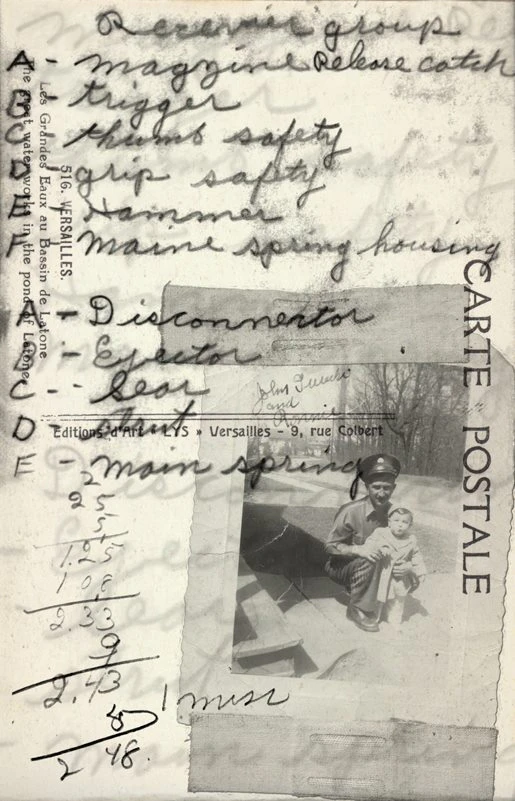 Recevier group
A - magyzine Release catch
B - trigger
C - thumb safety
D - grip safty
E - Hammer
F - Maine spring housing
A - Disconnertor
B - Ejector
C - Sear
D - Strut
E - Main spring
516. VERSAILLES.
Les Grandes Eaux au Bassin de Latone
The great waterworks in the pond of Latone
CARTE POSTALE
Editions d'Art « LYS » Versailles - 9, rue Colbert
John
and
1.25
1.08
2.33
9
2.43
1 misc
5
2.48.